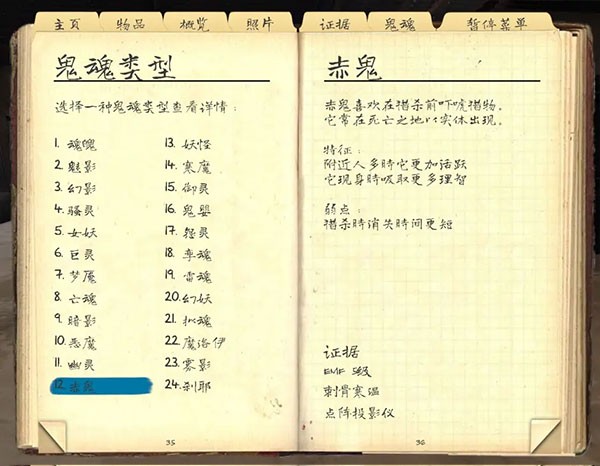 主页 物品 概览 照片 证据 鬼魂 暂停菜单
鬼魂类型
选择一种鬼魂类型查看详情：
1. 魂魄
2. 魅影
3. 幻影
4. 骚灵
5. 女妖
6. 巨灵
7. 梦魇
8. 亡魂
9. 暗影
10. 恶魔
11. 幽灵
12. 赤鬼
13. 妖怪
14. 寒魔
15. 御灵
16. 鬼婴
17. 怨灵
18. 孪魂
19. 雷魂
20. 幻妖
21. 拟魂
22. 魔洛伊
23. 雾影
24. 刹耶
35
赤鬼
赤鬼喜欢在猎杀前吓唬猎物。
它常在死亡之地以实体出现。
特征：
附近人多時它更加活跃
它现身時吸取更多理智
弱点：
猎杀時消失時间更短
证据
EMF 5级
刺骨寒温
点阵投影仪
36